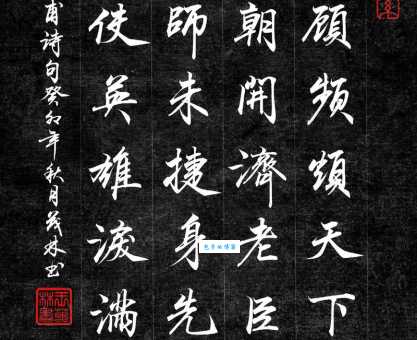 顧頻煩天下
朝開濟老臣
師未捷身先
使英雄淚滿
甫詩句癸卯年秋月茂林書